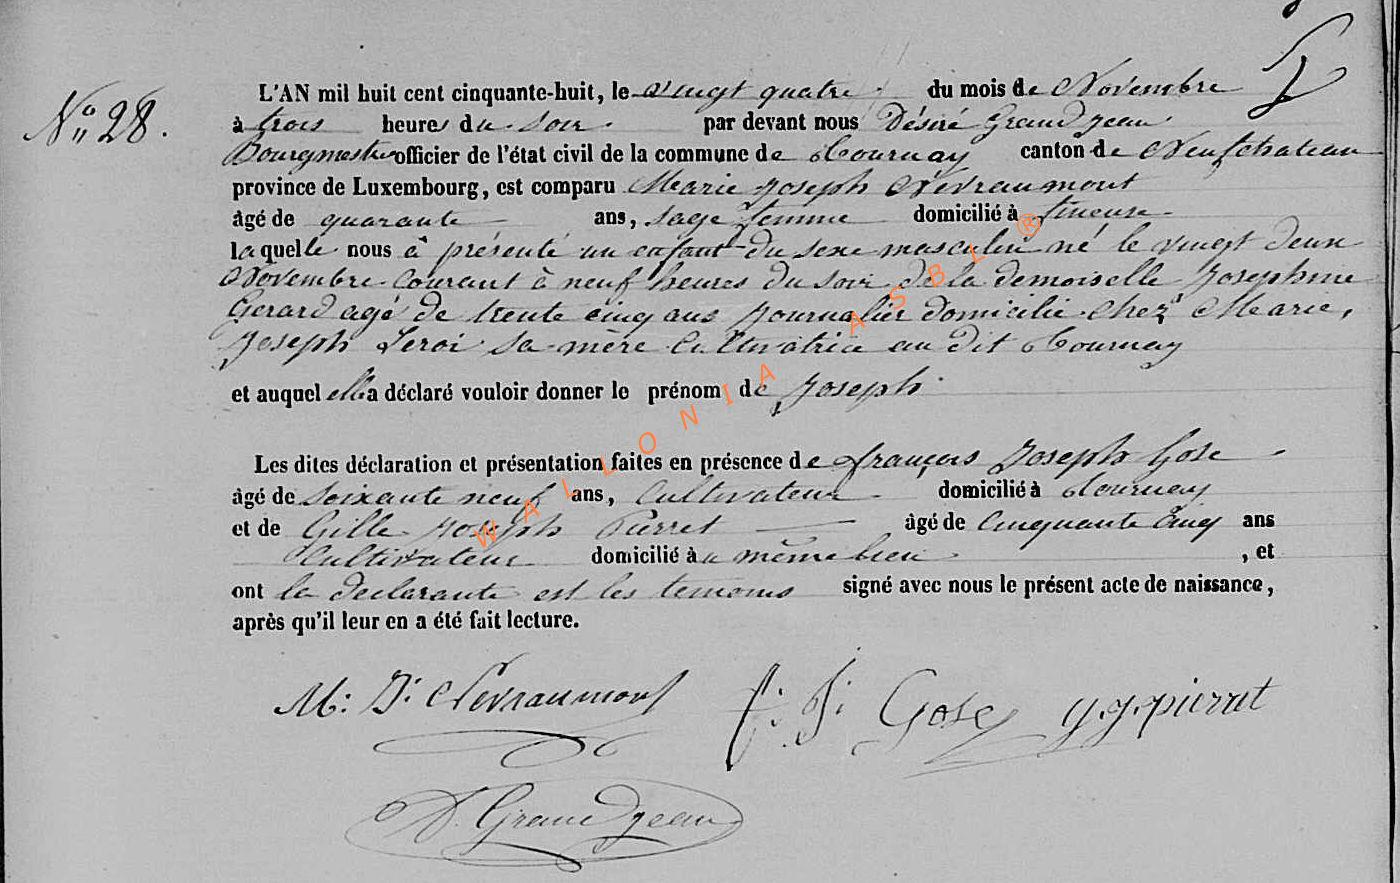 N° 28.
L'AN mil huit cent cinquante-huit, le vingt quatre du mois de Novembre
à trois heures du soir par devant nous Désiré Grandjean
Bourgmestre officier de l'état civil de la commune de Tournay canton de Neufchateau
province de Luxembourg, est comparu Marie Joseph Névraumont
âgé de quarante ans, sage femme domicilié à
laquelle nous à présenté un enfant du sexe masculin né le vingt deux
Novembre courant à neuf heures du soir de la demoiselle Josephine
Gerard agé de trente cinq ans journalier domicilié chez Marie,
Joseph Leroi sa mère Cultivatrice au dit Tournay
et auquel elle a déclaré vouloir donner le prénom de Joseph
Les dites déclaration et présentation faites en présence de françois Joseph Gose
âgé de soixante neuf ans, Cultivateur domicilié à Tournay
et de Gille Joseph Pierret âgé de Cinquante Cinq ans
Cultivateur domicilié au même lieu , et
ont la declarante est les temoins signé avec nous le présent acte de naissance,
après qu'il leur en a été fait lecture.
M: J: Nevraumont f: J: Gose g.j. pierret
D. Grandjean
WALLONIA ASBL ®